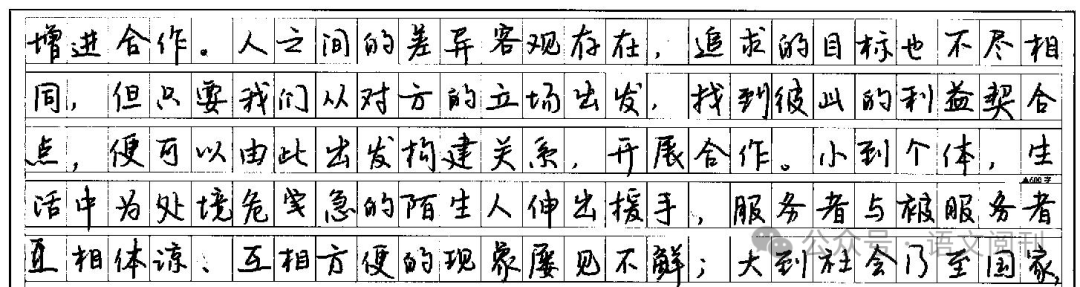 增进合作。人之间的差异客观存在，追求的目标也不尽相
同，但只要我们从对方的立场出发，找到彼此的利益契合
点，便可以由此出发构建关系，开展合作。小到个体，生
▲600字
活中为处境危突急的陌生人伸出援手，服务者与被服务者
互相体谅、互相方便的现象屡见不鲜；大到社会乃至国家，
公众号·语文阅刊